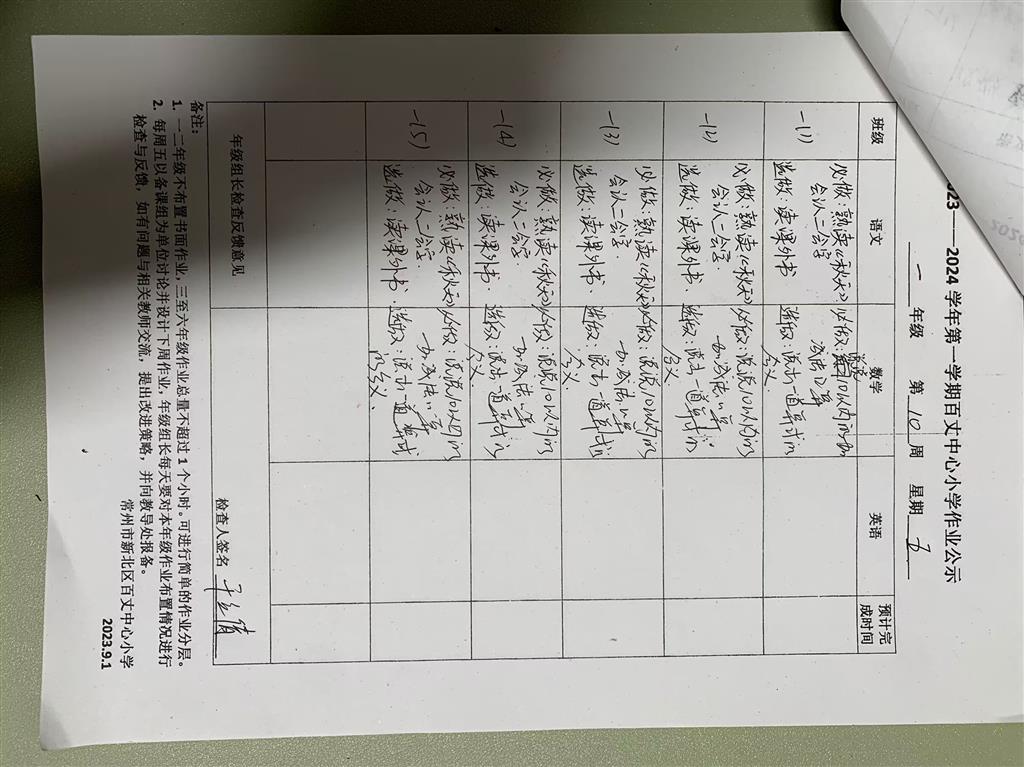 023——2024 学年第一学期百丈中心小学作业公示
一 年级 第 10 周 星期 五
班级 语文 数学 英语 预计完成时间
一(1)
必做：熟读《秋天》
会认二会字
选做：读课外书
必做：说说10以内的加
减法口算
选做：说出一道算式的
含义.
一(2)
必做：熟读《秋天》
会认二会字.
选做：读课外书.
必做：说说10以内的
加减法口算
选做：说出一道算式的
含义.
一(3)
必做：熟读《秋天》
会认二会字
选做：读课外书
必做：说说10以内的
加减法口算
选做：说出一道算式的
含义.
一(4)
必做：熟读《秋天》
会认二会字.
选做：读课外书.
必做：说说10以内的
加减法口算
选做：说出一道算式的
含义.
一(5)
必做：熟读《秋天》
会认二会字.
选做：读课外书.
必做：说说10以内的
加减法口算
选做：说出一道算式
的含义.
年级组长检查反馈意见
检查人签名
备注：
1. 一二年级不布置书面作业，三至六年级作业总量不超过 1 个小时。可进行简单的作业分层。
2. 每周五以备课组为单位讨论并设计下周作业，年级组长每天要对本年级作业布置情况进行
检查与反馈，如有问题与相关教师交流，提出改进策略，并向教导处报备。
常州市新北区百丈中心小学
2023.9.1